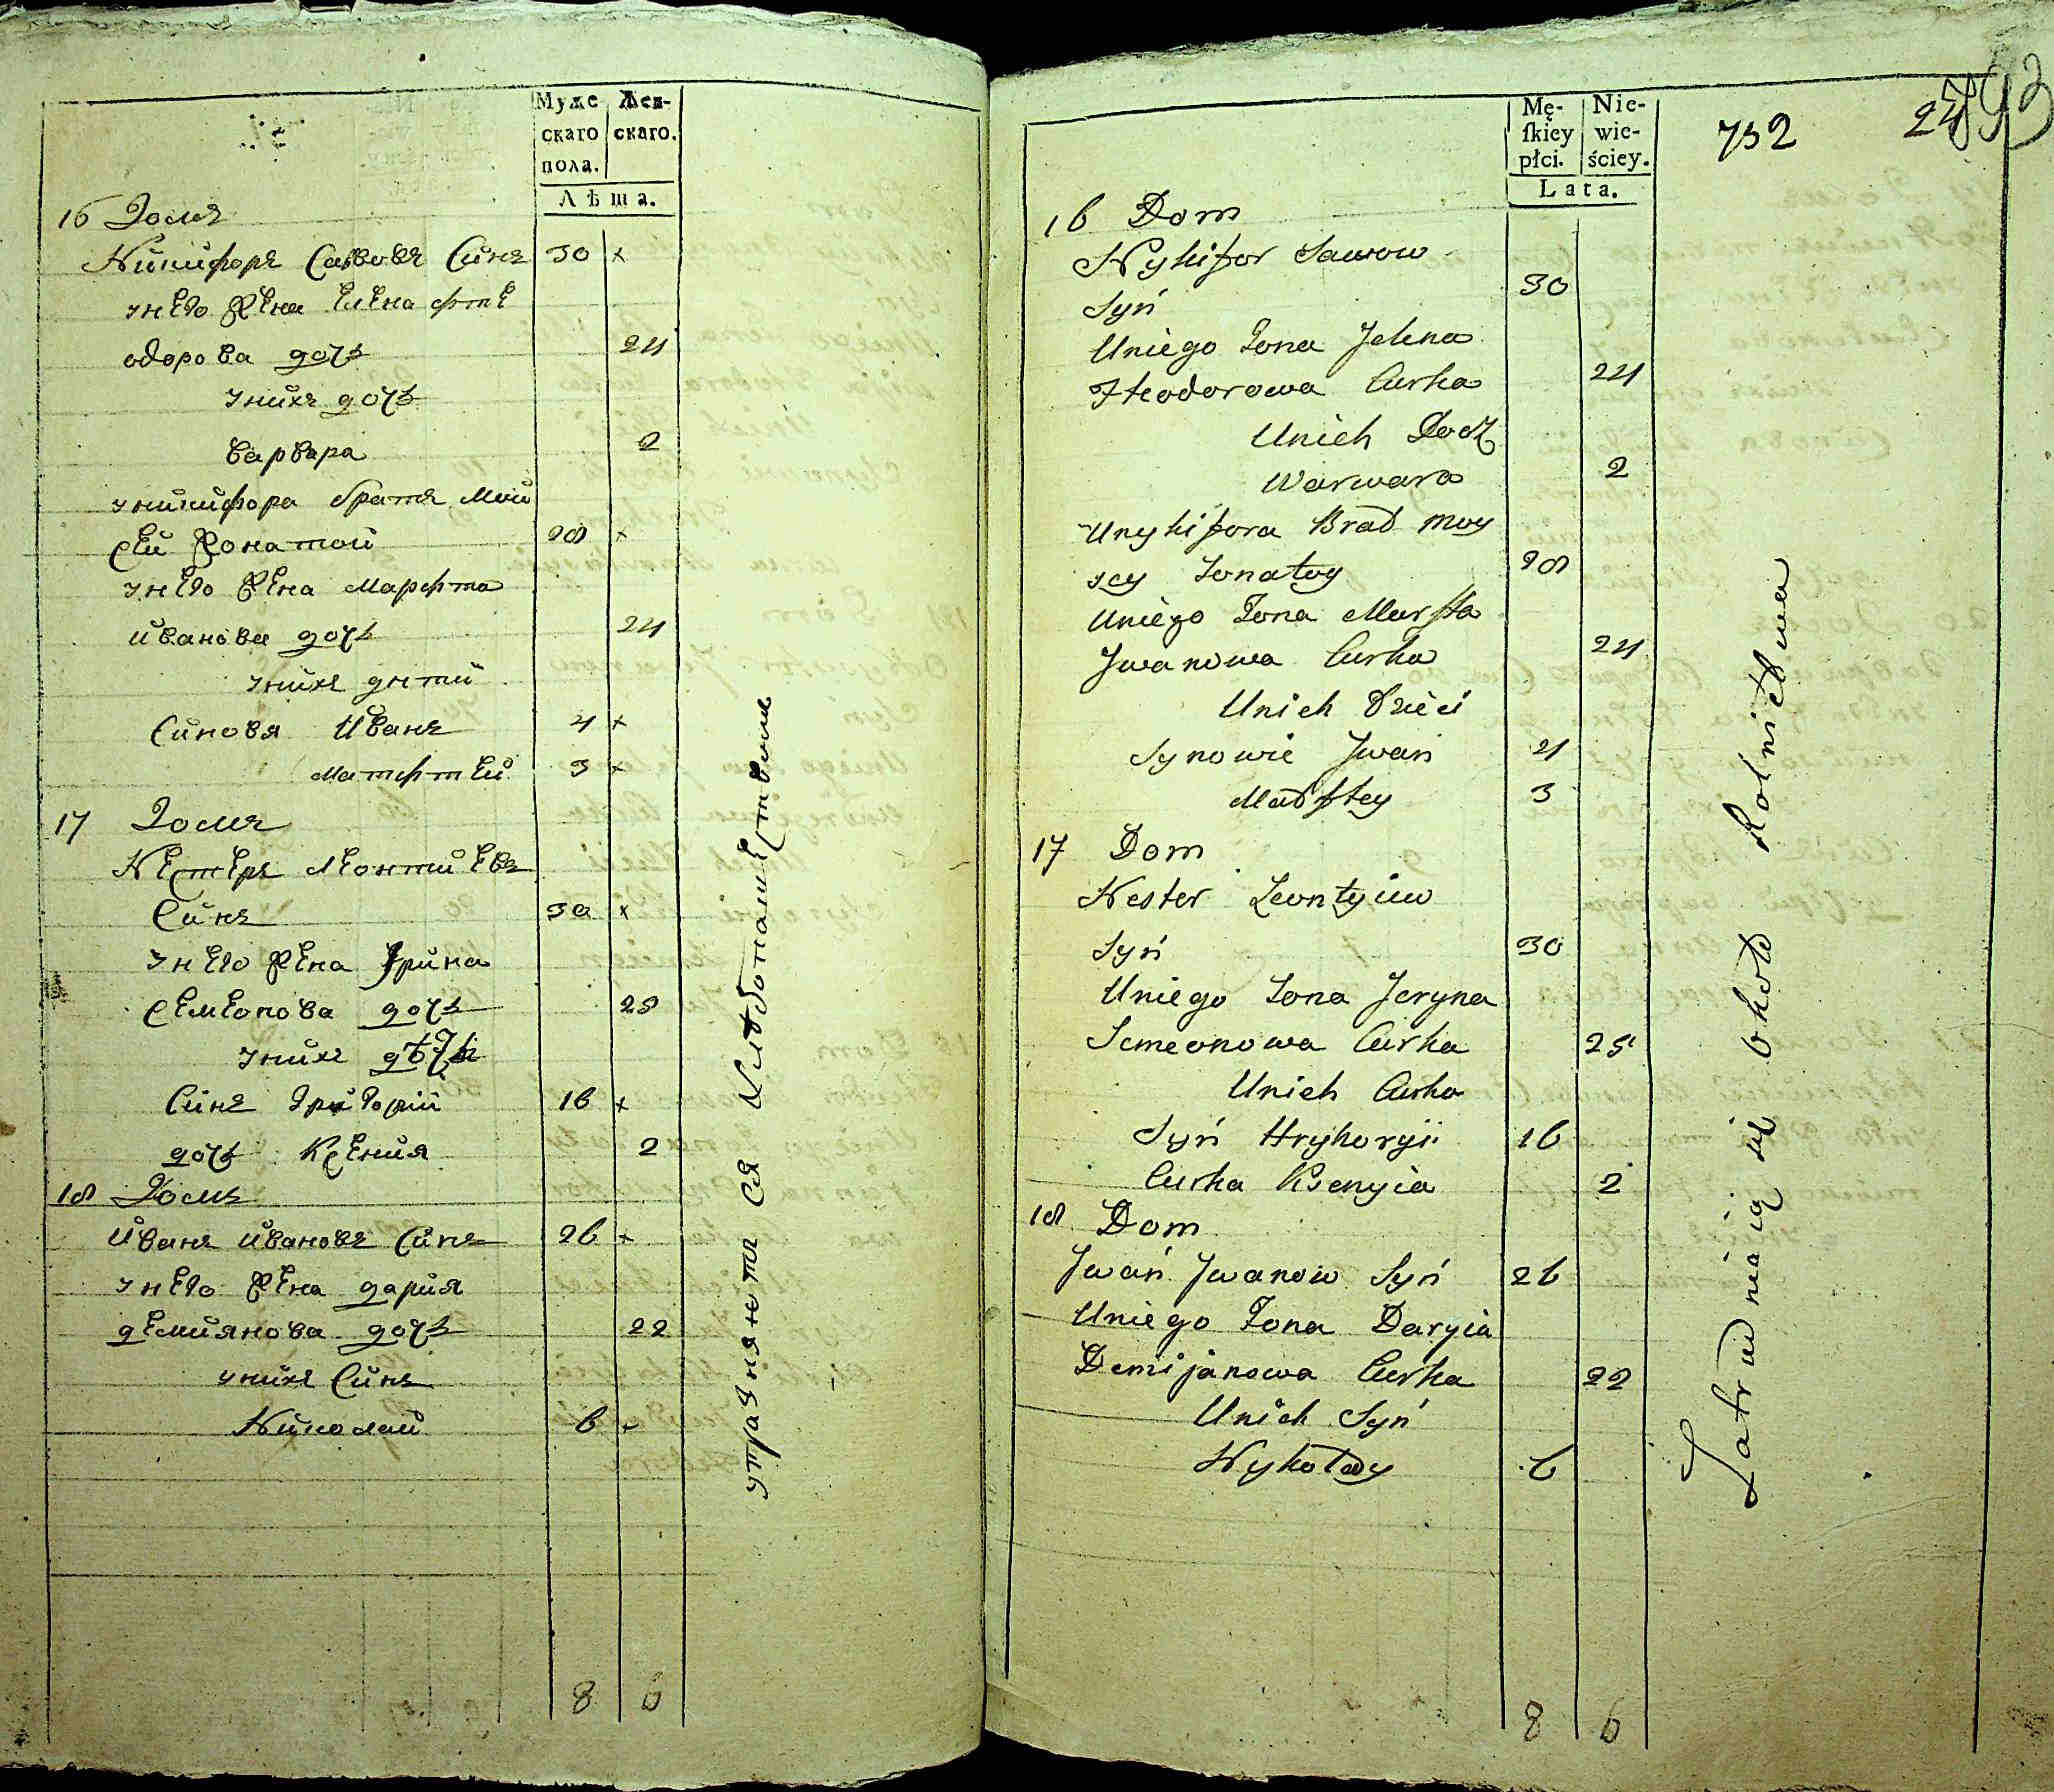 Муже
скаго
пола.
Жен-
скаго.
Лѣта.
16 Домъ
Никифоръ Саввовъ Синъ 30 x
Унего Жена Елена Фте
одорова дочь 24
Унихъ дочь
Варвара 2
Уникифора братъ Мой
сей Жонатой 28 x
Унего Жена Марфта
Иванова дочь 24
Унихъ дити
Синовя Иванъ 4 x
Матфтей 3 x
17 Домъ
Нестеръ Леонтиевъ
Синъ 30 x
Унего Жена Ирина
Семеонова дочь 25
Унихъ
Синъ Григорій 16 x
дочь Ксения 2
18 Домъ
Иванъ Ивановъ Синъ 26 x
Унего Жена Дария
Демиянова дочь 22
Унихъ Синъ
Николай 6 x
8 6
упражняются хлѣбопашествомъ
Mę-
ſkiey
płci.
Nie-
wie-
ściey.
Lata.
732
16 Dom
Nykifor Sawow
Syn 30
Uniego Żona Jelena
Fteodorowa Curka 24
Unich Docz
Warwara 2
Unykifora Brat Moy
sey Żonatoy 28
Uniego Żona Marfta
Jwanowa Curka 24
Unich Dzieci
Synowie Jwan 4
Matftey 3
17 Dom
Nester Leontyiow
Syn 30
Uniego Żona Jeryna
Semeonowa Curka 25
Unich Curka
Syn Hryhoryii 16
Curka Ksenyia 2
18 Dom
Jwan Jwanow Syn 26
Uniego Żona Daryia
Demijanowa Curka 22
Unich Syn
Nykołay 6
8 6
Zatrudniaią się około Rolnictwa